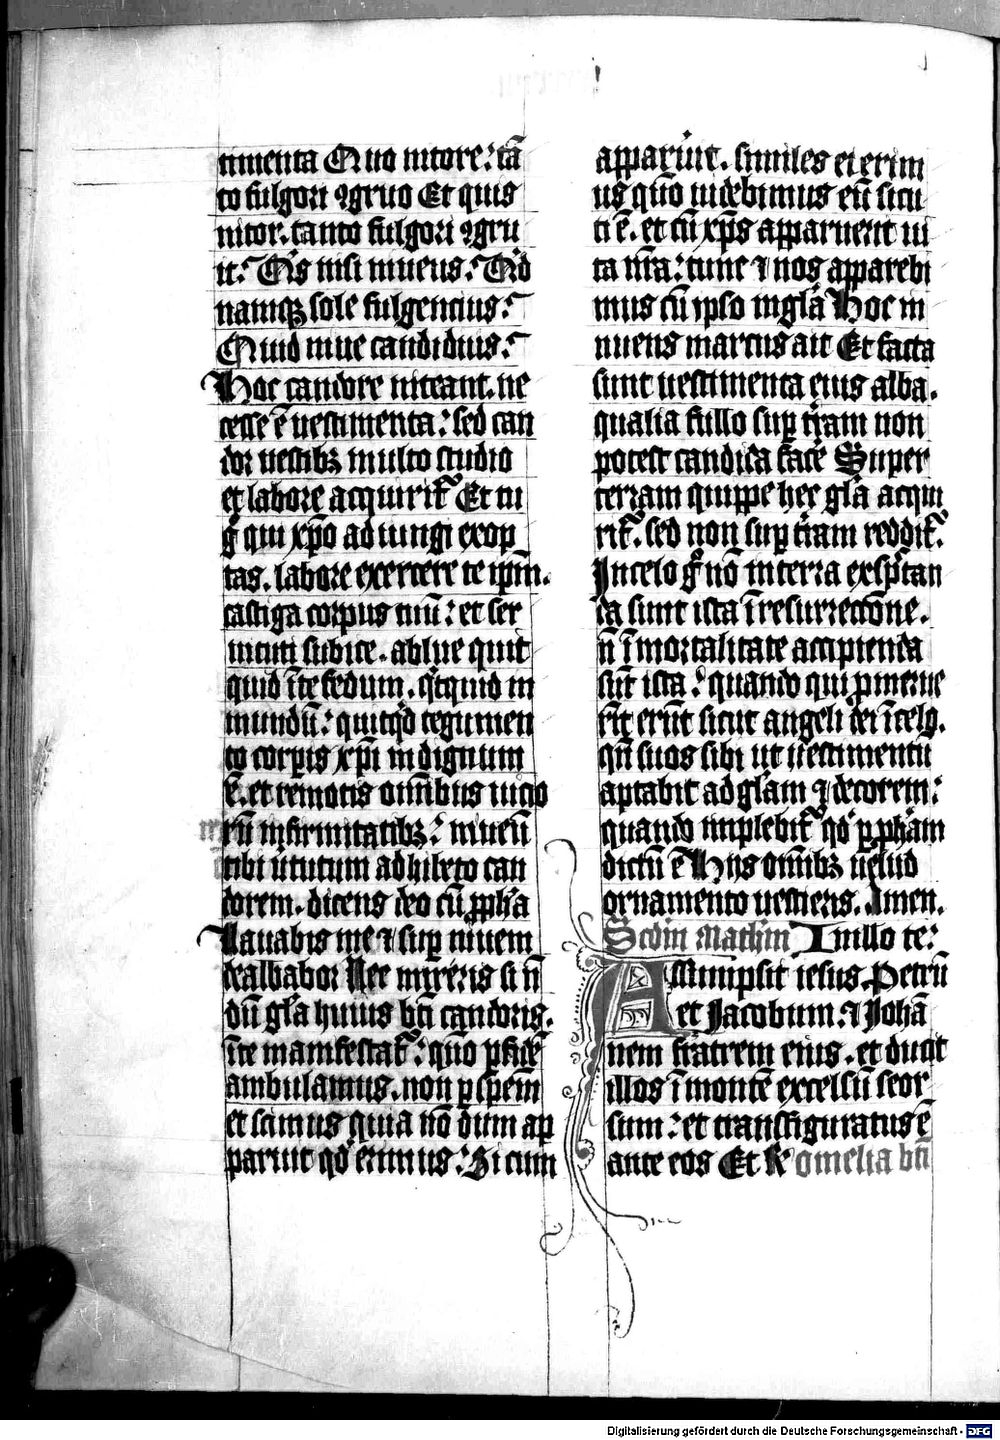 timenta Quo nitore: tā
to fulgori ꝯgruo Et quis
nitor. tanto fulgori ꝯgru
it: Q̇s nisi niueus: Q̇d
namqꝫ sole fulgencius:
Quid niue candidius:
Hoc candore niteant. ne
cesse ē uestimenta: sed can
dor uestibꝫ multo studio
et labore acquirit᷑ Et tu
gͦ qui xp̄o adiungi exop
tas. labore exercere te ip̄m.
castiga corpus tuū: et ser
uituti subice. ablue quit
quid īte fedum. qͥcquid in
mundū: quitqͥd tegumen
to corpis xp̄i indignum
ē. et remotis omībus uicio
rū infirmitatibꝫ: niueū
tibi ūtutum adhibeto can
dorem. dicens deo cū ꝓph̄a
Lauabis me ⁊ sup niuem
dealbabor Nec mireris si n̄
dū gl̄a huius bt̄i candoris.
īte manifestat᷑: quo ꝑ fidē
ambulamus. non ꝑ spem̄
et scimus quia nō dum ap
paruit qd̓ erimus: Si cum
apparuit. similes ei erim
us qm̄o uidebimus eū sicu
ti ē. et cū xp̄s apparuerit ui
ta nr̄a: tunc ⁊ nos apparebi
mus cū ipso in gl̄a Hoc in
nuens marcus ait Et facta
sunt uestimenta eius alba.
qualia fullo sup tr̄am non
potest candida facē Super
terram quippe hec gl̄a acqui
rit᷑. sed non sup tr̄am reddit᷑.
In celo gͦ nō in terra exsp̄tan
da sunt ista ī resurrectōne.
n̄ ī mortalitate accipienda
sūt ista: quando qui ꝓmerue
rīt erūt sicut angeli dei ī celo.
qn̄ suos sibi ut uestimentū
aptabit ad gl̄am ⁊ decorem:
quando implebit᷑ qd̓ ꝑ ꝓph̄am
dictū ē Hijs omībꝫ uelud
ornamento uestieris. Amen.
Scdm̄ Mathm̄ In illo te:
Assumpsit iesus Petrū
et Jacobum ⁊ Johā
nem fratrem eius. et duxit
illos ī montē excelsū seor
sum: et transfiguratus ē
ante eos Et R̓ Omelia bt̄i
Digitalisierung gefördert durch die Deutsche Forschungsgemeinschaft - DFG